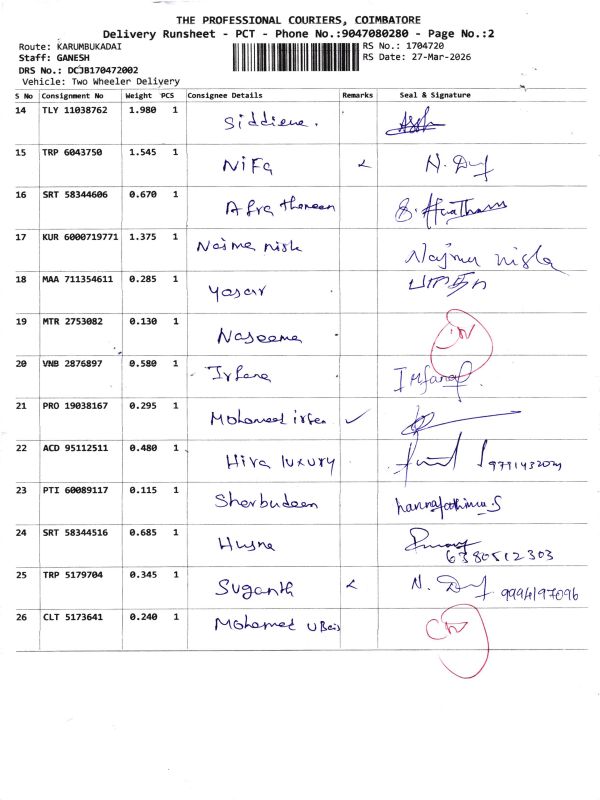 THE PROFESSIONAL COURIERS, COIMBATORE
Delivery Runsheet - PCT - Phone No.:9047080280 - Page No.:2
Route: KARUMBUKADAI RS No.: 1704720
Staff: GANESH RS Date: 27-Mar-2026
DRS No.: DCJB170472002
Vehicle: Two Wheeler Delivery
S No Consignment No Weight PCS Consignee Details Remarks Seal & Signature
14 TLY 11038762 1.980 1 Siddieue.
15 TRP 6043750 1.545 1 NiFa
16 SRT 58344606 0.670 1 Afra thereen
17 KUR 6000719771 1.375 1 Najma nisha Najmu nisha
18 MAA 711354611 0.285 1 yasar
19 MTR 2753082 0.130 1 Naseema
20 VNB 2876897 0.580 1 Irfana
21 PRO 19038167 0.295 1 Mohamed irfan ✓
22 ACD 95112511 0.480 1 Hira luxury
23 PTI 60089117 0.115 1 Sherbudeen hannafathima.S
24 SRT 58344516 0.685 1 Husna
6380512303
25 TRP 5179704 0.345 1 Suganth 9994197096
26 CLT 5173641 0.240 1 Mohamed Ubais